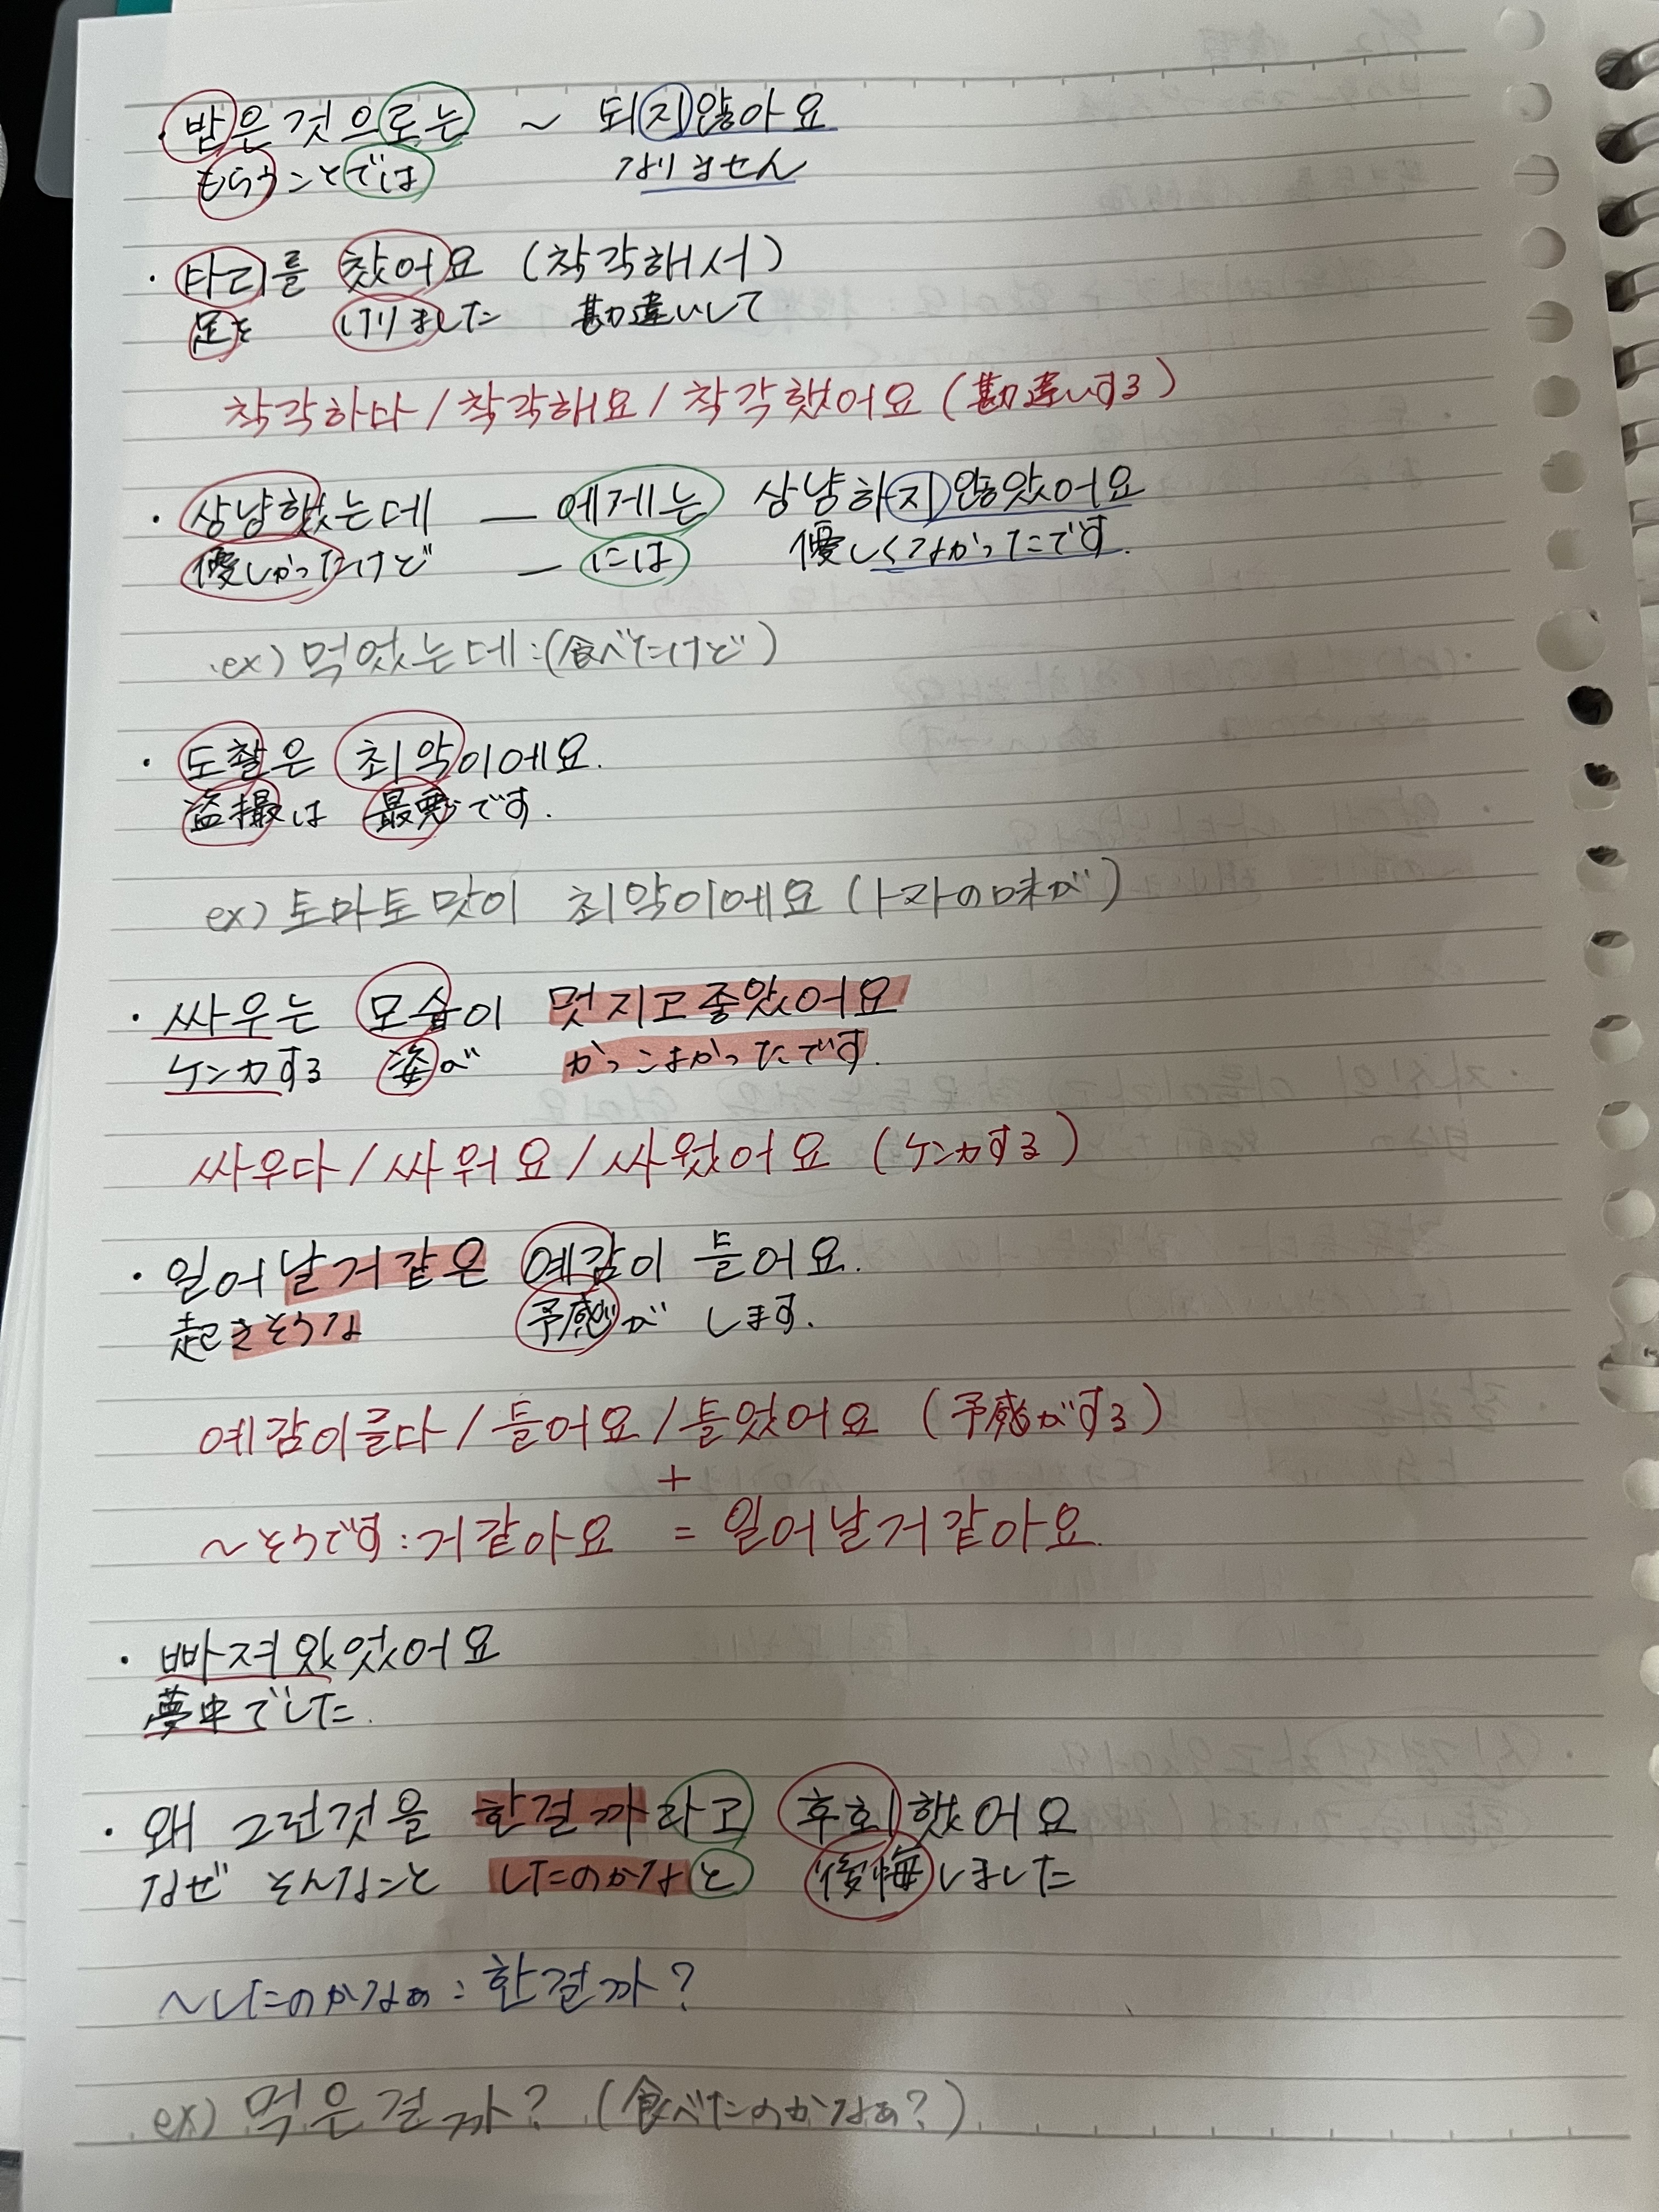 ・받은 것으로는 ~ 되지않아요
もらうことでは なりません
・다리를 찼어요 (착각해서)
足を けりました 勘違いして
착각하다/착각해요/착각했어요 (勘違いする)
・상냥했는데 — 에게는 상냥하지않았어요
優しかったけど — には 優しくなかったです.
ex) 먹었는데:(食べたけど)
・도촬은 최악이에요.
盗撮は 最悪です.
ex) 토마토맛이 최악이에요 (トマトの味が)
・싸우는 모습이 멋지고좋았어요
ケンカする 姿が かっこよかったです.
싸우다/싸워요/싸웠어요 (ケンカする)
・일어날거같은 예감이 들어요.
起きそうな 予感が します.
예감이를다/들어요/들었어요 (予感がする)
+
~そうです:거같아요 = 일어날거같아요.
・빠져있었어요
夢中でした.
・왜 그런것을 한걸까라고 후회했어요
なぜ そんなこと したのかなと 後悔しました
~したのかなぁ:한걸까?
ex) 먹은걸까? (食べたのかなぁ?)